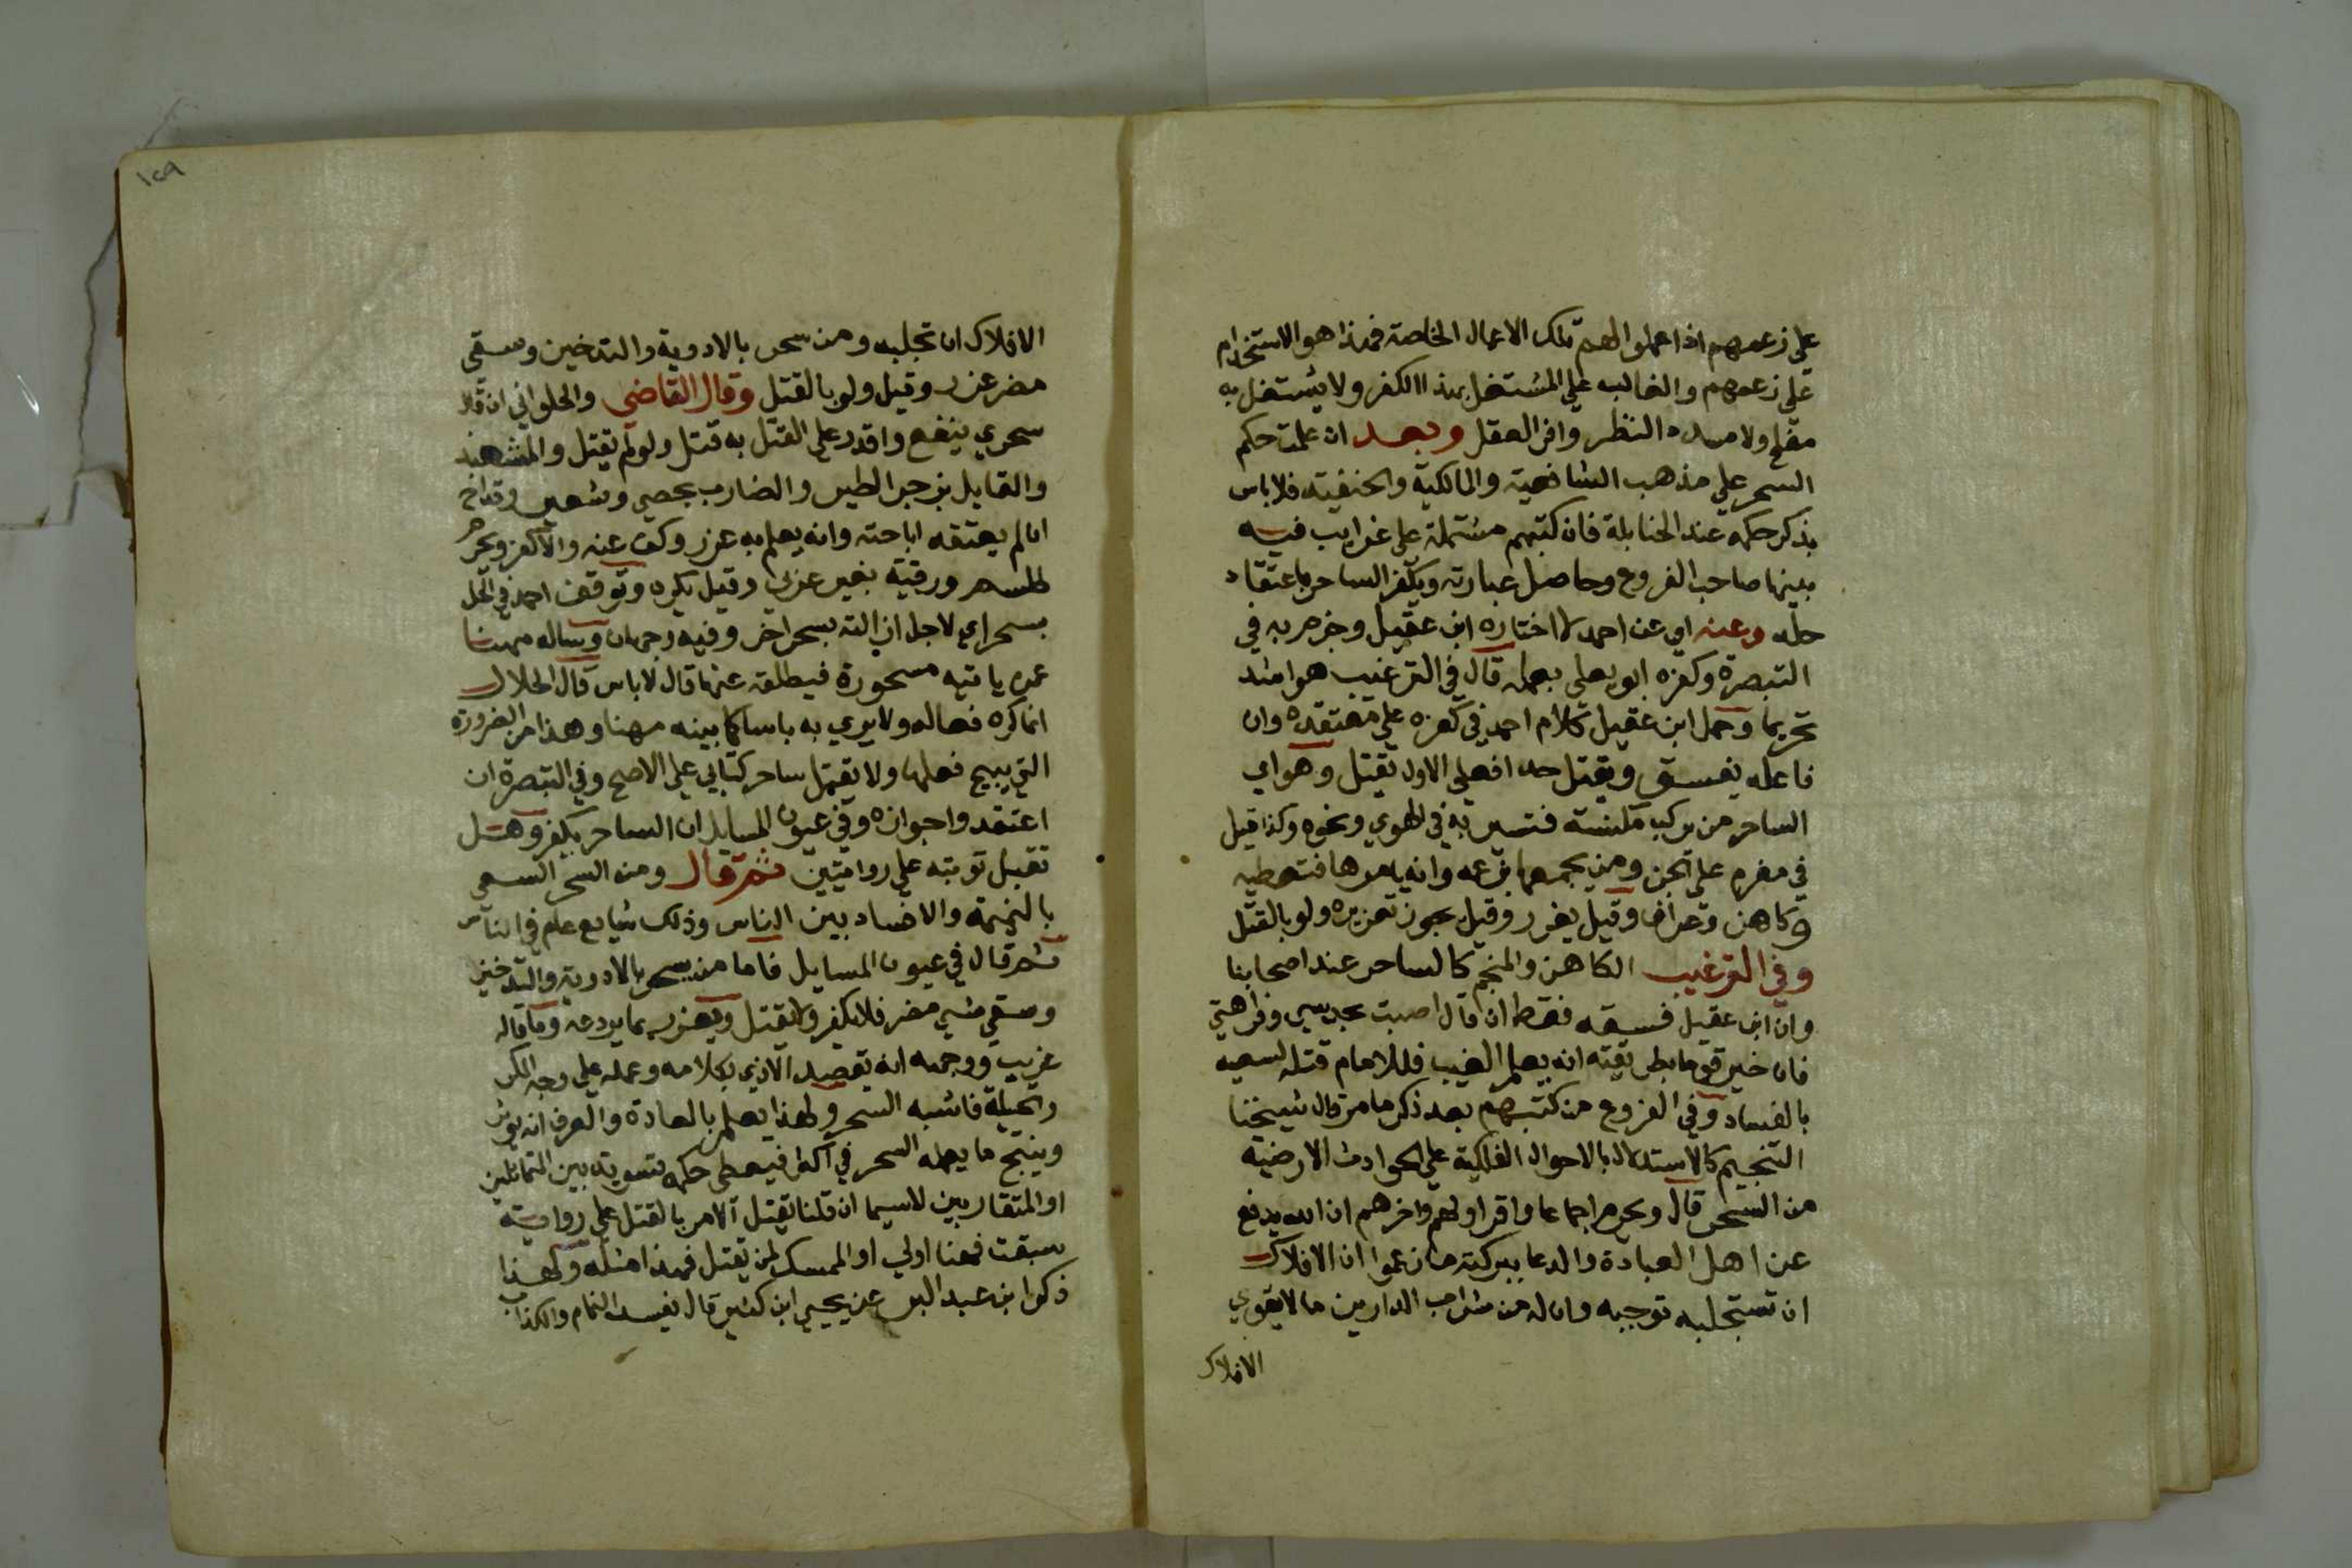 على زعمهم اذا عملوا لهم تلك الاعمال الخاصة فهذا هو الاستخدام
على زعمهم والغالب على المشتغل بهذا الكفر ولا يشتغل به
مفلح ولا مسدد النظر وافر العقل وبعد ان علمت حكم
السحر علي مذهب الشافعية والمالكية والحنفيته فلا باس
بذكر حكمه عند الحنابلة فان كتبهم مشتملة على غرايب فيه
بينها صاحب الفروع وحاصل عبارته ويكفر الساحر باعتقاد
حله وعنه اي عن احمد لا اختاره ابن عقيل وجزم به في
التبصرة وكفره ابو يعلى بعمله قال في الترغيب هو اشد
تحريما وحمل ابن عقيل كلام احمد في كفره على معتقده وان
فاعله يفسق ويقتل حدا فعلى الاول يقتل وهو اي
الساحر من يركب مكنسته فتسير به في الهوي ونحوه وكذا قيل
في معزم على الجن ومن يجمعها بزعمه وانه يامرها فتعطيه
وكاهن وعراف وقيل يعزر وقيل يجوز تعزيره ولو بالقتل
وفي الترغيب الكاهن والمنجم كالساحر عند اصحابنا
وان ابن عقيل فسقه فقط ان قال اصبت بحدسي وفراهتي
فان خير قوما بطريقته انه يعلم الغيب فللامام قتله لسعيه
بالفساد وفي الفروع من كتبهم بعد ذكر ما مر قال شيخنا
التنجيم كالاستدلال بالاحوال الفلكية على الحوادث الارضية
من السحر قال ويحرم اجماعا واقر اولهم واخرهم ان الله يدفع
عن اهل العبادة والدعا ببركته ما زعموا ان الافلاك
ان تستجلبه توجبه وان له من مثراب الدارين ما لا يقوي
الافلاك
١٢٩
الافلاك ان تجلبه ومن سحر بالادوية والتدخين وسقي
مضر عزر وقيل ولو بالقتل وقال القاضي والحلواني ان قال
سحري ينفع واقدر على القتل به قتل ولو لم يقتل والمشعبذ
والقايل بزجر الطير والضارب بحصي وشعير وقداح
ان لم يعتقد اباحته وانه يعلم به عزر وكف عنه والا كفر ويحرم
طلسم ورقية بغير عربي وقيل يكره وتوقف احمد في الحل
بسحر اي لاجل ازالته بسحر اخر وفيه وجهان وساله مهنا
عمن ياتيه مسحورة فيطلقه عنها قال لا باس قال الخلال
انما كره فعاله ولا يري به باسا كما بينه مهنا وهذا من الضرورة
التي يبيح فعلها ولا يقتل ساحر كتابي على الاصح وفي التبصرة ان
اعتقدوا جوازه وفي عيون المسايل ان الساحر يكفر وهل
تقبل توبته على روايتين ثم قال ومن السحر السعي
بالنميمة والافساد بين الناس وذلك شايع عام في الناس
ثم قال في عيون المسايل فاما من يسحر بالادوية والتدخين
وسقي شي مضر فلا يكفر ولا يقتل ويعزر بما يردعه وما قاله
غريب ووجهه انه يقصد الاذي بكلامه وعمله على وجه المكر
والحيلة فاشبه السحر ولهذا يعلم بالعادة والعرف انه يوثر
وينتج ما يعمله السحر في اكثر فيعطى حكمه تسوية بين المتماثلين
او المتقاربين لاسيما ان قلنا يقتل الامر بالقتل على رواية
سبقت فهنا اولي او الممسك لمن يقتل فهذا مثله ولهذا
ذكر ابن عبد البر عن يحيي ابن كثير قال يفسد النمام والكذاب